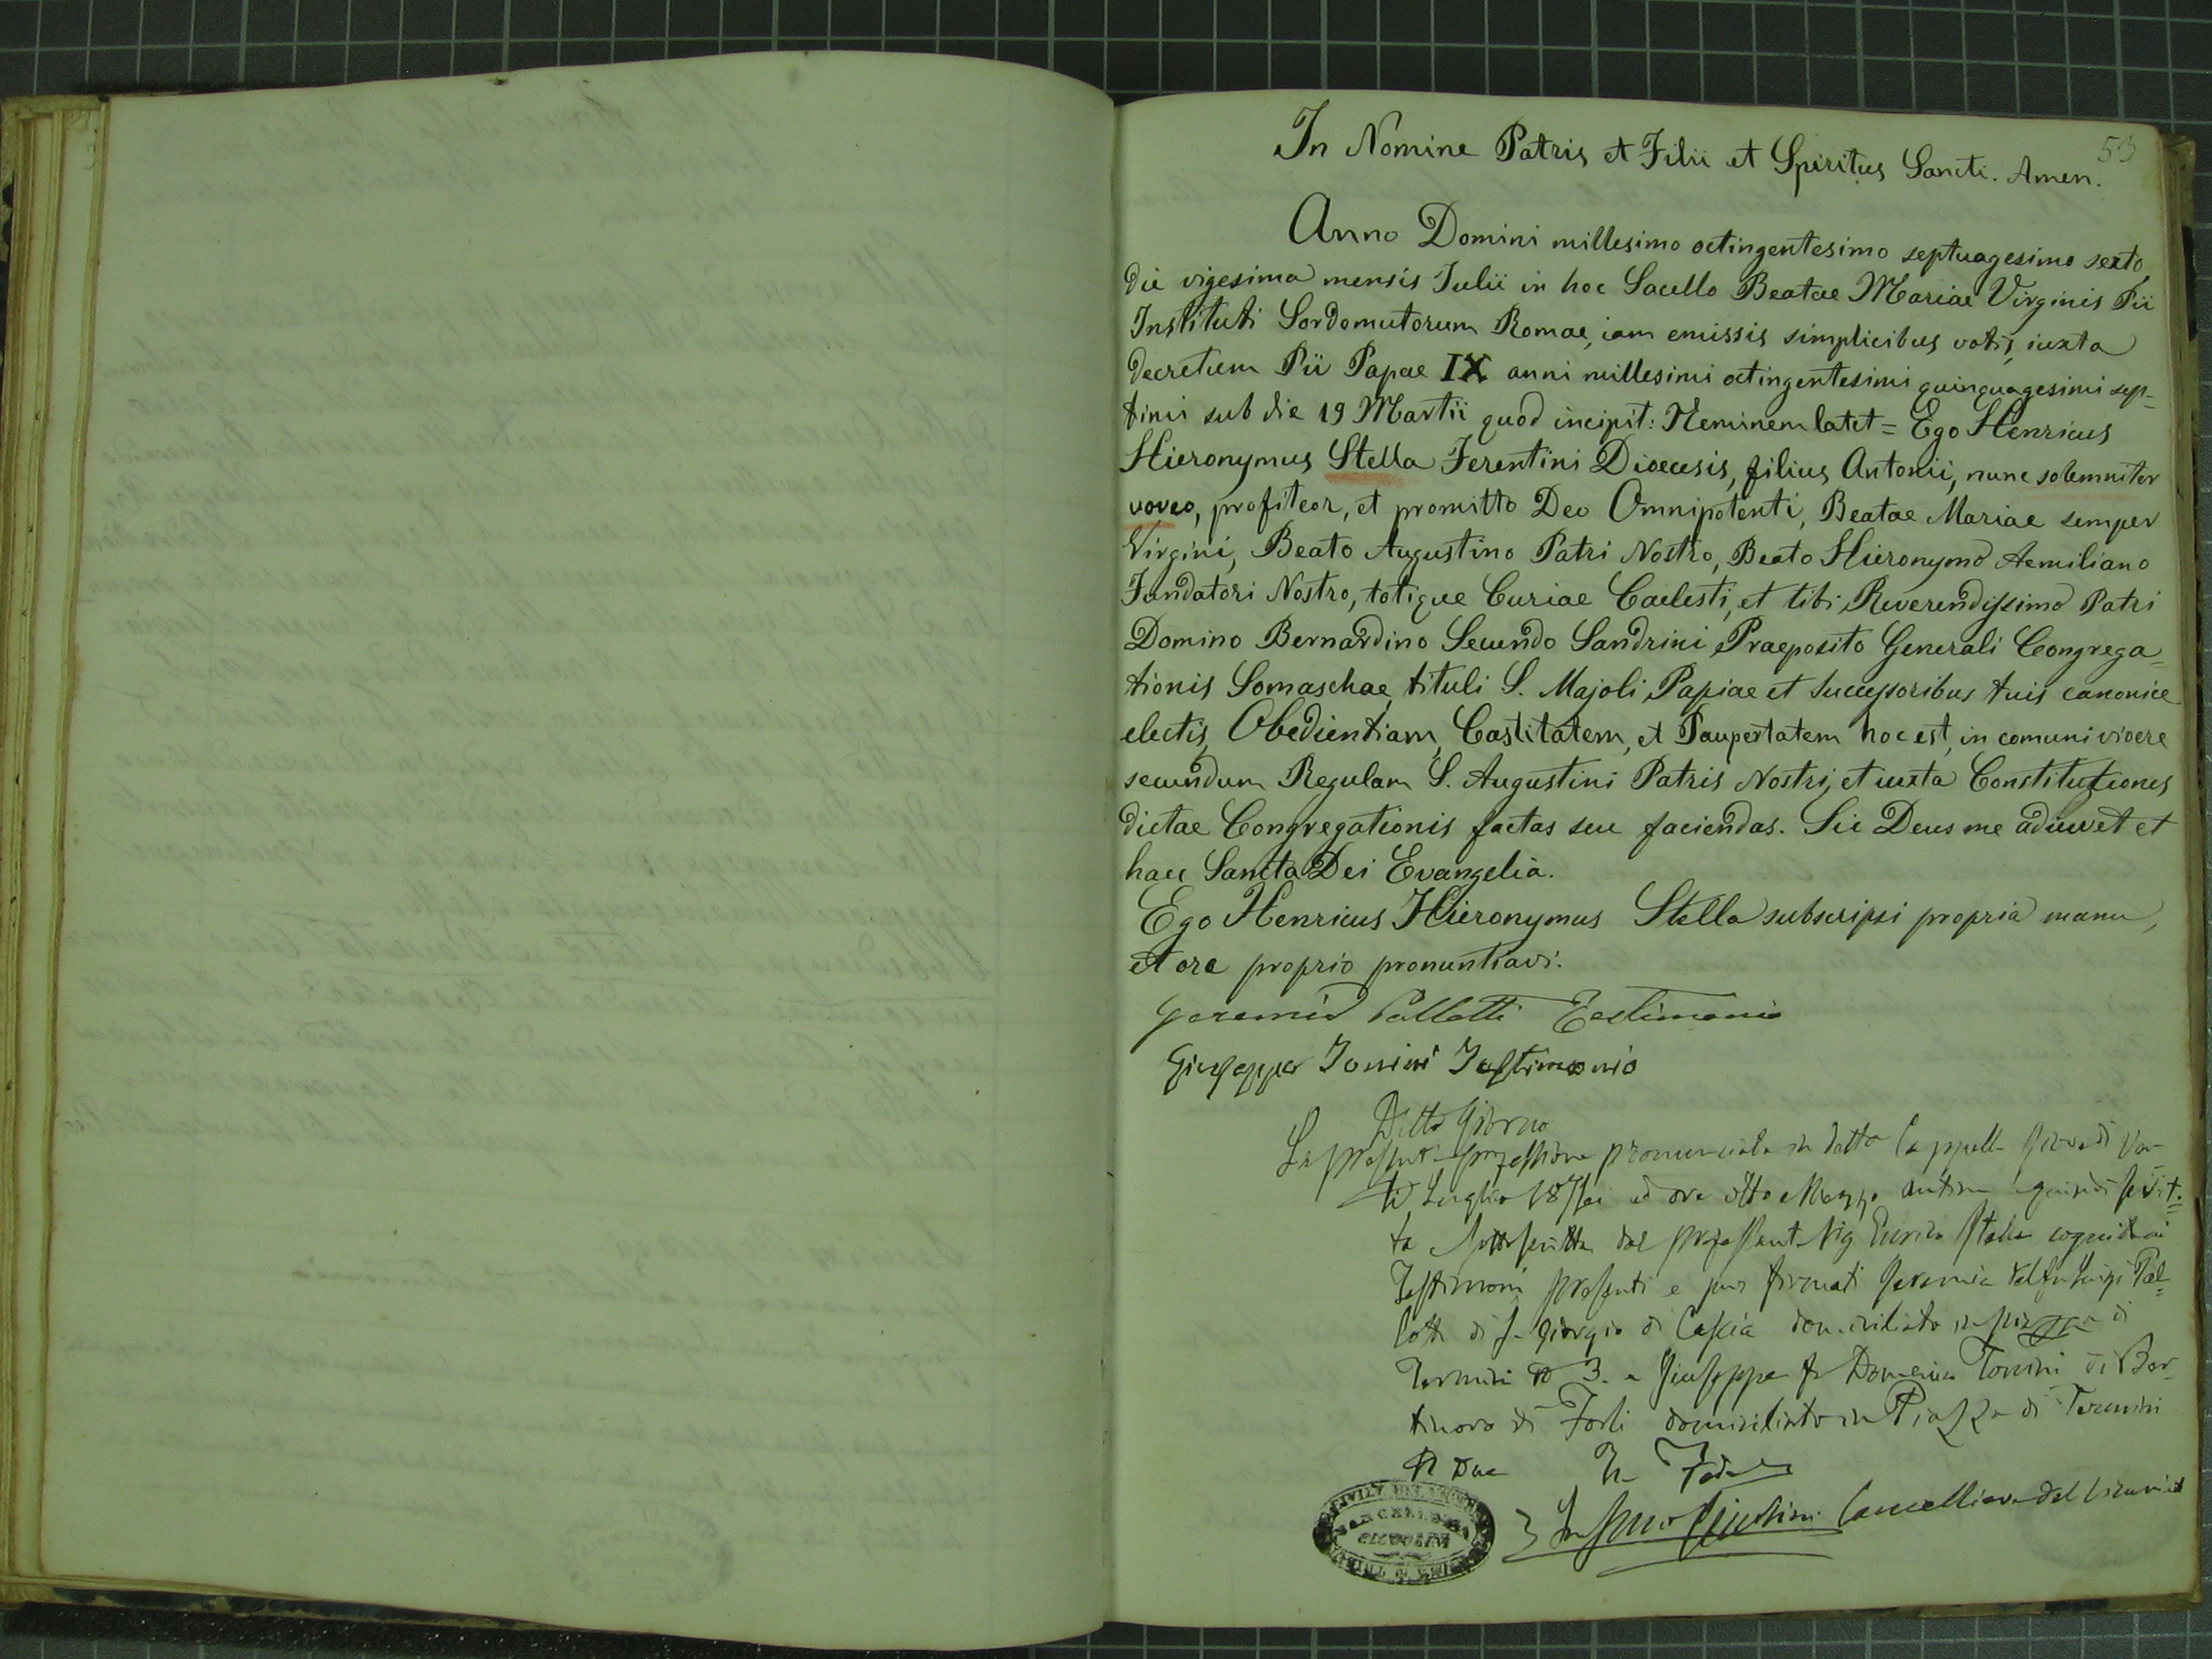 53
In Nomine Patris et Filii et Spiritus Sancti. Amen.
Anno Domini millesimo octingentesimo septuagesimo sexto,
die vigesima mensis Iulii in hoc Sacello Beatae Mariae Virginis Pii
Instituti Sordomutorum Romae, iam emissis simplicibus votis, iuxta
decretum Pii Papae IX anni millesimi octingentesimi quinquagesimi sep=
timi sub die 19 Martii quod incipit: Neminem latet = Ego Henricus
Hieronymus Stella Ferentini Dioecesis, filius Antonii, nunc solemniter
voveo, profiteor, et promitto Deo Omnipotenti, Beatae Mariae semper
Virgini, Beato Augustino Patri Nostro, Beato Hieronymo Aemiliano
Fundatori Nostro, totique Curiae Caelesti, et tibi Reverendissimo Patri
Domino Bernardino Secundo Sandrini Praeposito Generali Congrega=
tionis Somaschae, tituli S. Majoli Papiae et Successoribus tuis canonice
electis, Obedientiam, Castitatem, et Paupertatem hoc est, in comuni vivere
secundum Regulam S. Augustini Patris Nostri, et iuxta Constitutiones
dictae Congregationis factas seu faciendas. Sic Deus me adiuvet et
haec Sancta Dei Evangelia.
Ego Henricus Hieronymus Stella subscripsi propria manu,
et ore proprio pronuntiavi.
Geremia Pallotti Testimonio
Giuseppe Tonini Testimonio
Detto Giorno
La presente professione pronunciata in detta Cappella Giovedi Ven
ti Luglio 1876 ad ore otto e Mezzo
ta sottoscritta dal professante Sig Enrico Stella cogniti ai
Testimoni presenti e pur firmati Geremia del fu Luigi Pal=
lotti di S. Giorgio di Cascia domiciliato in piazza di
Termini N 3. e Giuseppe fu Domenico Tonini di Ber
tinoro di Forli domiciliato in Piazza di Termini
N Due In Fede
Cancelliere del Vicariato